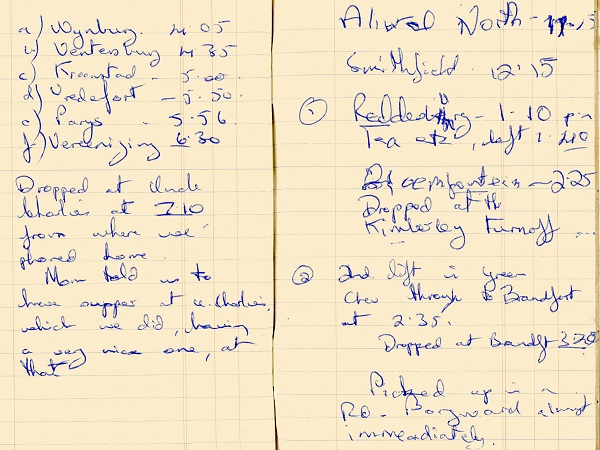 a) Wynburg. 4.05
b) Ventersburg 4.35
c) Kroonstad - 5.00.
d) Vredefort - 5.30.
e) Parys - 5.56.
f) Vereeniging 6.30
Dropped at Uncle
Charlies at 7.10
from where we
phoned home.
Mom told us to
have supper at U. Charlies,
which we did, having
a very nice one, at
that
Aliwal North - 11.15
Smithfield. 12.15
① Reddesburg - 1.10 pm
Tea etc, left 1.40
Bloemfontein - 2.25
Dropped at the
Kimberley turnoff ...
② 2nd lift in green
Chev through to Brandfort
at 2.35.
Dropped at Brandft 3.20
Picked up in a
Borgward almost
immediately.